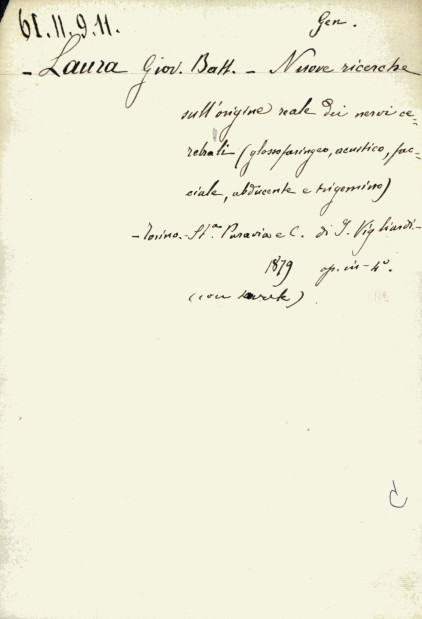 61.11.9.11.
Gen.
- Laura Giov. Batt. - Nuove ricerche
sull'origine reale dei nervi ce-
rebrali (glossofaringeo, acustico, fac-
ciale, abducente e trigemino)
- Torino. - St.ª Paravia e C. di I. Vigliardi -
1879 op. in-4°.
(con tavole)